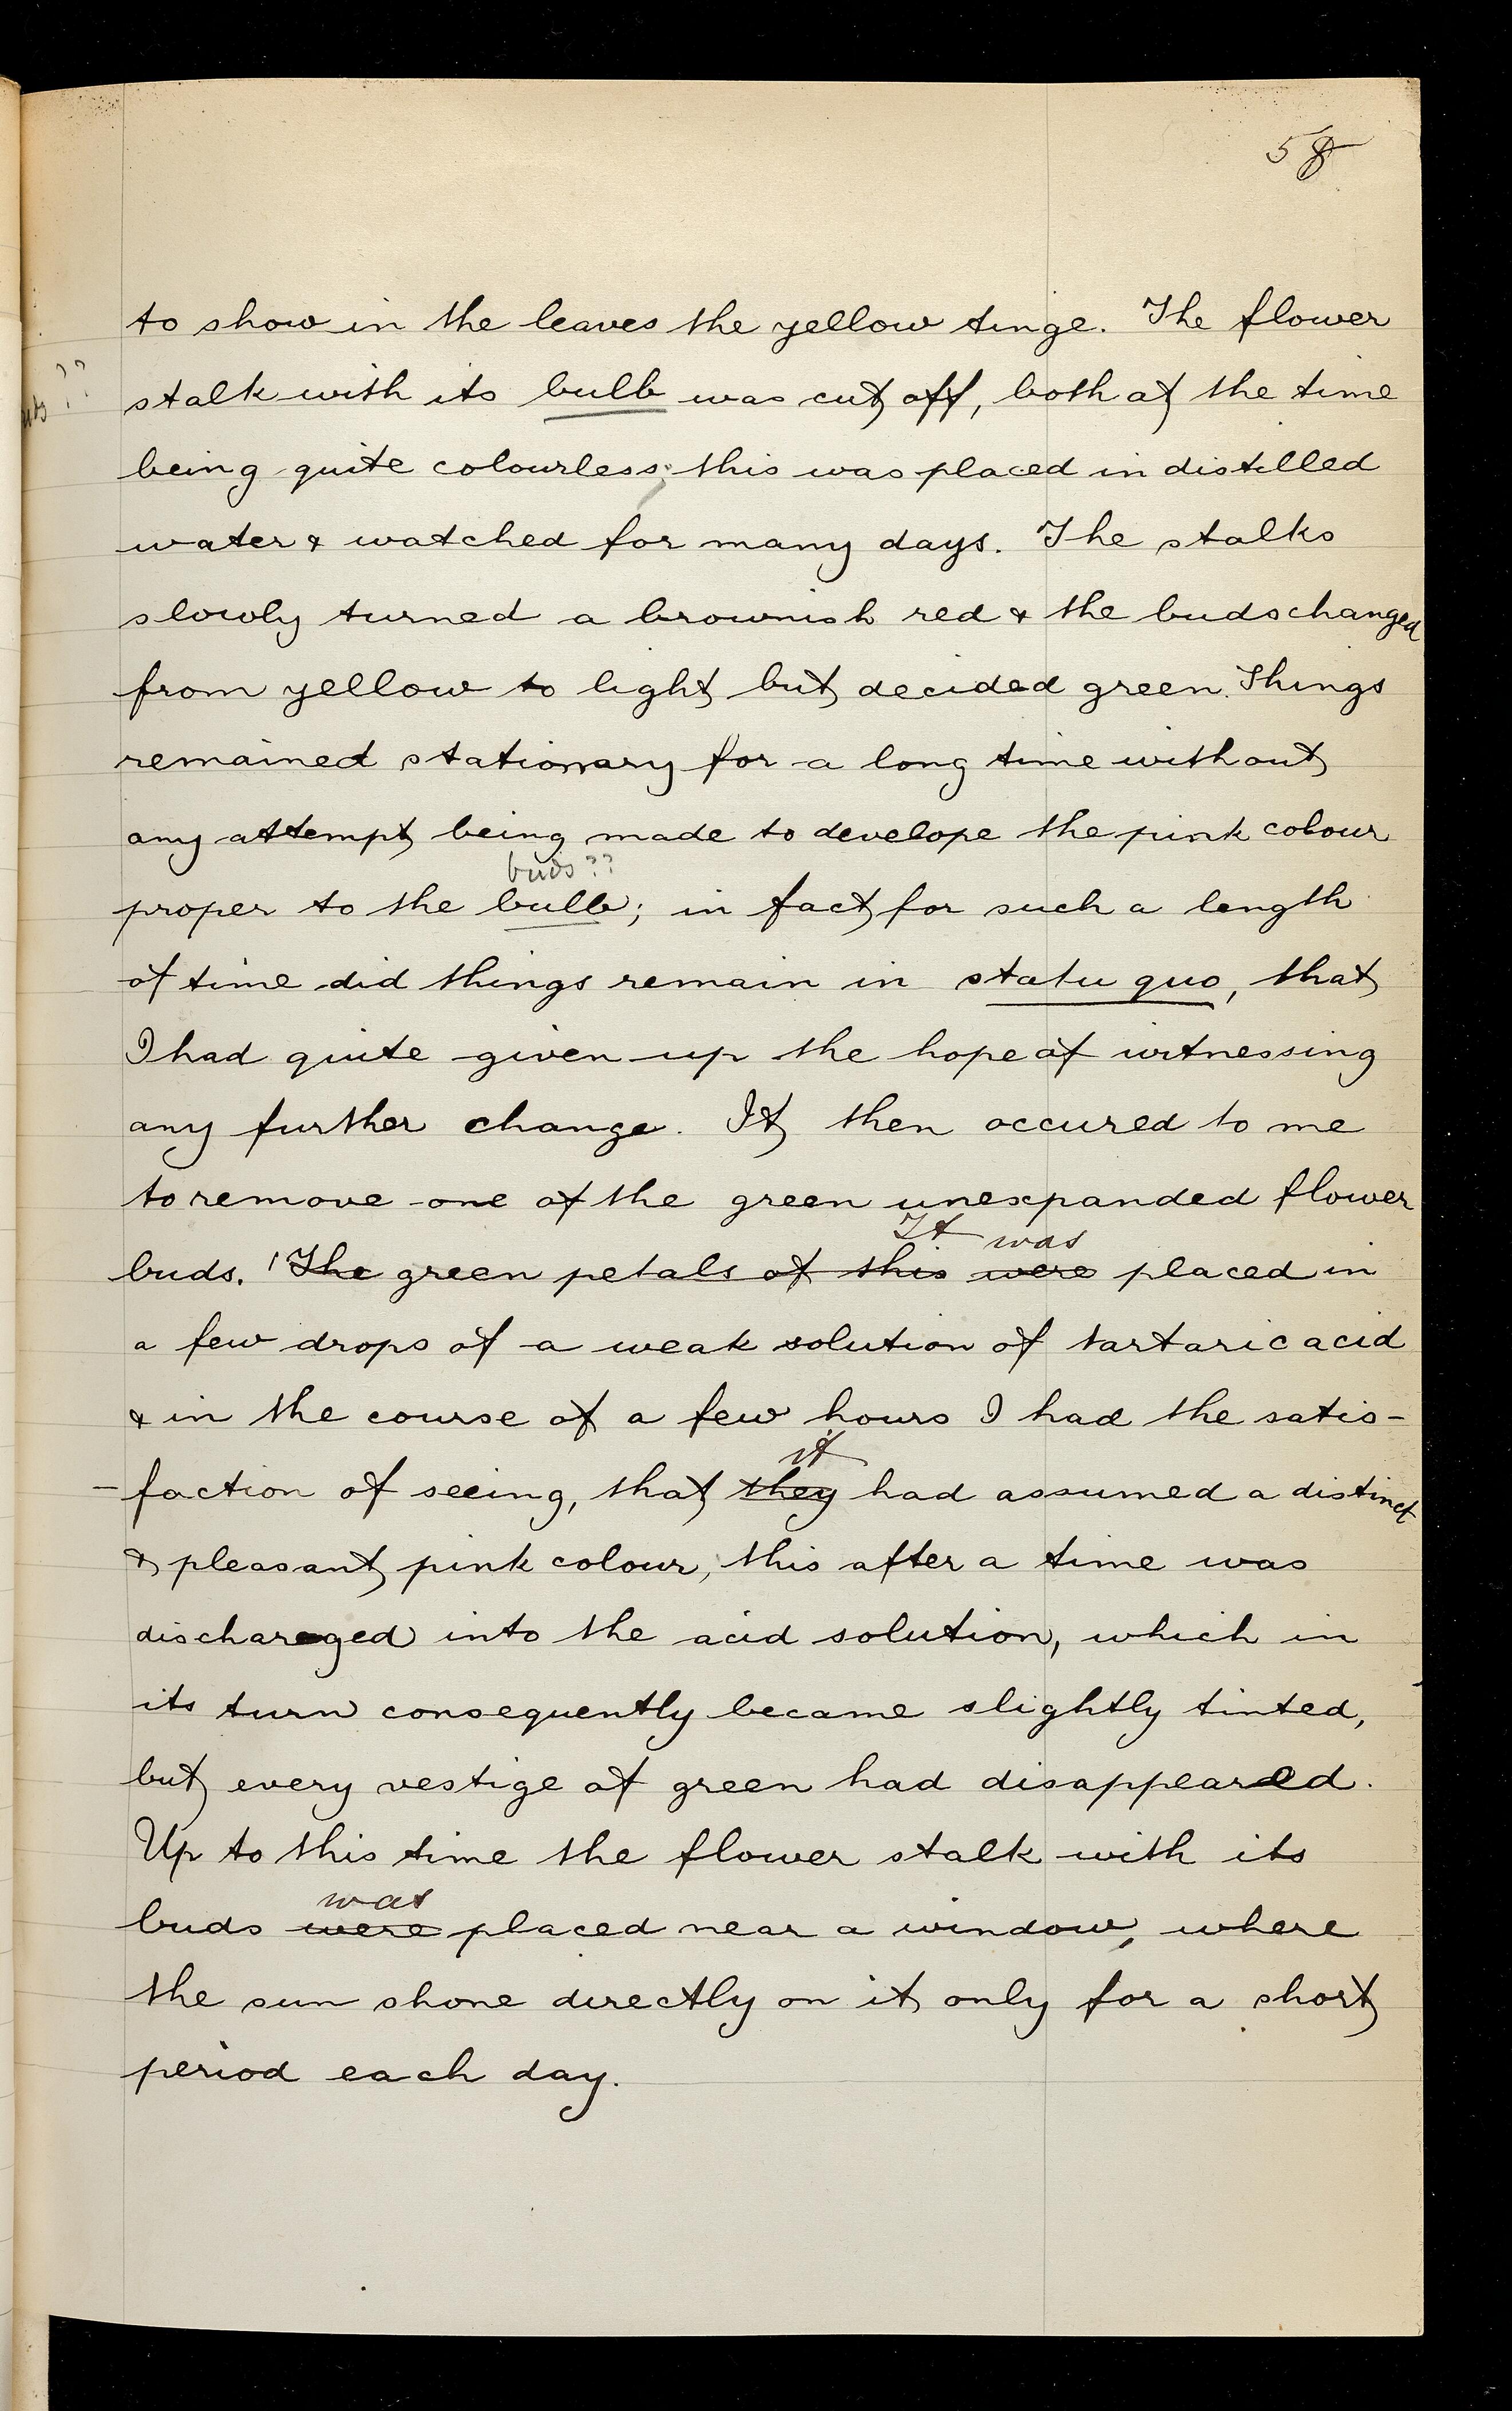 58
to show in the leaves the yellow tinge. The flower
??
stalk with its bulb was cut off, both at the time
being quite colourless; this was placed in distilled
water & watched for many days. The stalks
slowly turned a brownish red & the buds changed
from yellow to light but decided green. Things
remained stationary for a long time without
any attempt being made to develope the pink colour
buds??
proper to the bulb; in fact for such a length
of time did things remain in statu quo, that
I had quite given up the hope of witnessing
any further change. It then occured to me
to remove one of the green unexpanded flower
It was
buds. The green petals of this were placed in
a few drops of a weak solution of tartaric acid
& in the course of a few hours I had the satis-
it
-faction of seeing, that they had assumed a distinct
& pleasant pink colour, this after a time was
discharged into the acid solution, which in
its turn consequently became slightly tinted,
but every vestige of green had disappeared.
Up to this time the flower stalk with its
was
buds were placed near a window, where
the sun shone directly on it only for a short
period each day.